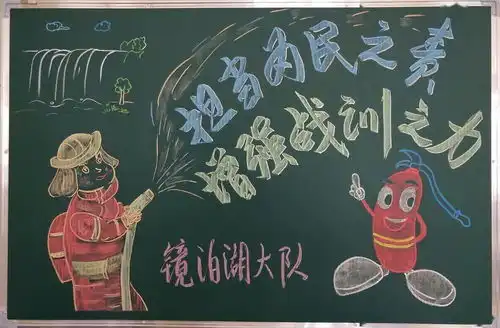 担当为民之责
增强战训之力
镜泊湖大队